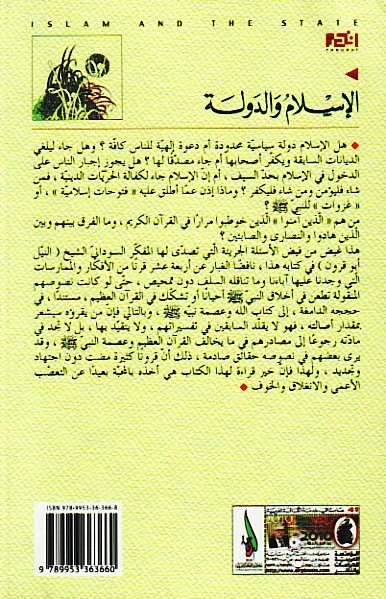 ISLAM AND THE STATE
الإسلام والدولة
هل الإسلام دولة سياسيّة محدودة أم دعوة إلهيّة للناس كافّة ؟ وهل جاء ليلغي
الديانات السابقة ويكفّر أصحابها أم جاء مصدقًا لها ؟ هل يجوز إجبار الناس على
الدخول في الإسلام بحدّ السيف ، أم إنّ الإسلام جاء لكفالة الحريّات الدينية ، فمن
شاء فليؤمن ومن شاء فليكفر ؟ وماذا إذن عمّا أطلق عليه « فتوحات إسلامية » ، أو
« غزوات » للنبيّ ﷺ ؟
من هم « الّذين آمنوا » الّذين خوطبوا مرارًا في القرآن الكريم ، وما الفرق بينهم وبين
الّذين هادوا والنصارى والصابئين ؟
هذا غيض من فيض الأسئلة الجريئة الّتي تصدّى لها المفكّر السودانيّ الشيخ ( النيّل
أبو قرون ) في كتابه هذا ، نافضًا الغبار عن أربعة عشر قرنًا من الأفكار والممارسات
الّتي وجدنا عليها آباءنا وما تناقله السلف دون تمحيص ، حتّى لو كانت نصوصهم
المنقولة تطعن في أخلاق النبيّ ﷺ أحيانًا أو تشكّك في القرآن العظيم ، مستندًا ، في
حججه الدامغة ، إلى كتاب الله وعصمة نبيّه ﷺ ، وبالتالي فإنّ من يقرؤه سيشعر
بمقدار أصالته ، فهو لا يقلّد السابقين في تفسيراتهم ، ولا يتقيّد بها ، بل لا تجد في
مادّته رجوعًا إلى مصادرهم في ما يخالف القرآن العظيم وعصمة النبيّ ﷺ ، وقد
يرى بعضهم في نصوصه حقائق صادمة ، ذلك أنّ قرونًا كثيرة مضت دون اجتهاد
وتجديد ، ولهذا فإنّ خير قراءة لهذا الكتاب هي أخذه بالمحبّة بعيدًا عن التعصّب
الأعمى والانغلاق والخوف
ISBN 978-9953-36-366-8
9 789953 363660
2010